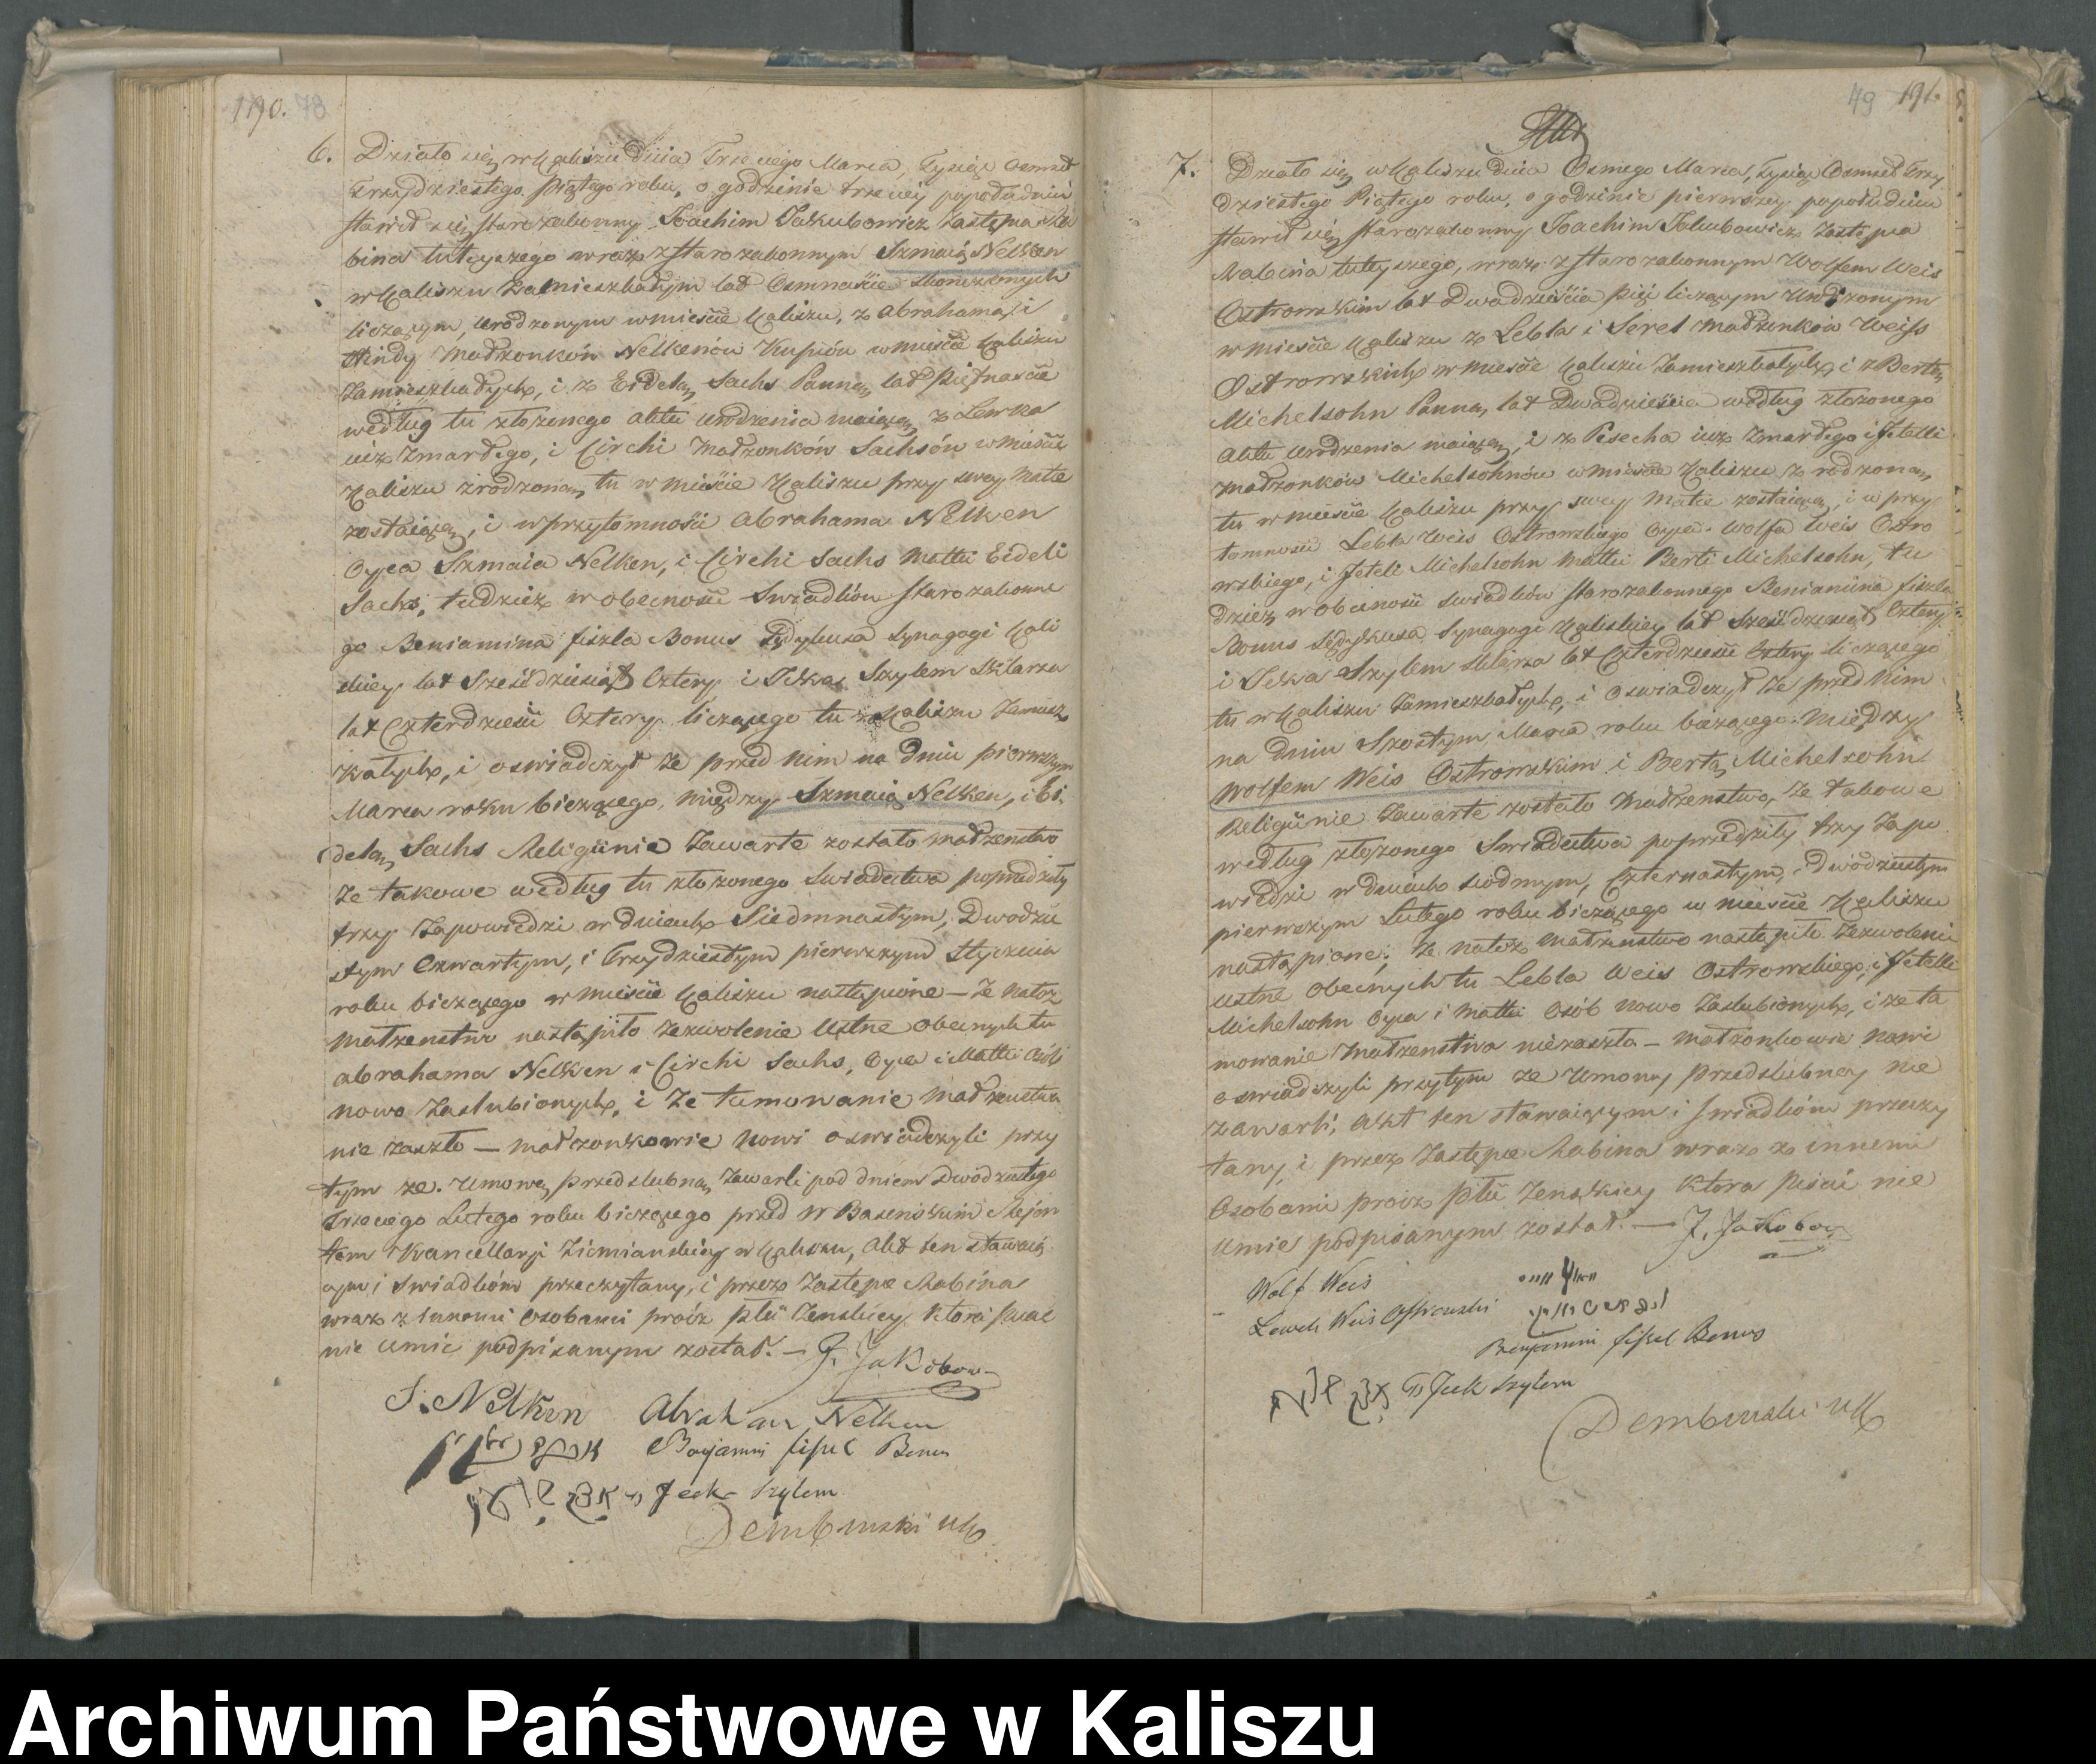 190. 78
6. Działo się w Kaliszu dnia Trzeciego Marca, Tysiąc Osmset
Trzydziestego piątego roku, o godzinie trzeciey popołudniu
stawił się starozakonny Joachim Jakubowicz Zastępca Ra
bina tuteyszego wraz z starozakonnym Szmaią Nelken
w Kaliszu zamieszkałym lat Osmnaście skończonych
liczącym, urodzonym w mieście Kaliszu, z Abrahama i
Hindy małżonków Nelkenów Kupców w mieście Kaliszu
zamieszkałych, i z Eidelą Sachs Panną, lat piętnaście
według tu złożonego aktu urodzenia maiącą, z Lewka
iuż zmarłego, i Circhi małżonków Sachsów w mieście
Kaliszu zrodzoną, tu w mieście Kaliszu przy swey matce
zostaiącą, i w przytomności Abrahama Nelken
Oyca Szmaia Nelken, i Circhi Sachs matki Eideli
Sachs, tudzież w obecności Swiadków starozakonne
go Beniamina Fiszla Bonus Syndykusa Synagogi Kali
skiey lat Sześćdziesiąt Cztery i Icka Szylem Szklarza
lat Czterdzieści Cztery liczącego tu w Kaliszu zamiesz
kałych, i oswiadczył że przed nim na dniu pierwszym
Marca roku bieżącego, między Szmaią Nelken, i Ei-
delą Sachs Religiinie Zawarte zostało małżeństwo
że takowe według tu złożonego Swiadectwa poprzedziły
trzy Zapowiedzi w dniach Siedmnastym, Dwodzie
stym Czwartym, i Trzydziestym pierwszym Stycznia
roku bieżącego w mieście Kaliszu nastąpione — że na toż
małżeństwo nastąpiło zezwolenie Ustne obecnych tu
Abrahama Nelken i Circhi Sachs, Oyca i Matki Osób
nowo Zaślubionych, i że tamowanie małżeństwa
nie zaszło — małżonkowie nowi oswiadczyli przy
tym że umowę przedślubną zawarli pod dniem Dwódziestego
trzeciego Lutego roku bieżącego przed W Basińskim Rejen
tem Kancellaryi Ziemiańskiey w Kaliszu, Akt ten stawaią
cym i swiadkom przeczytany, i przez Zastępcę Rabina
wraz z innemi Osobami prócz płci Zeńskiey która pisać
nie umie podpisanym został. — J. Jakobow
S. Nelken Abraham Nelken
Benjamin fischel Bonus
Jeck Szylem
Dembinski
79 191.
7. Działo się w Kaliszu dnia Osmego Marca, Tysiąc Osmset Trzy
dziestego Piątego roku, o godzinie pierwszey popołudniu
stawił się starozakonny Joachim Jakubowicz Zastępca
Rabina tuteyszego, wraz z starozakonnym Wolfem Weis
Ostrowskim lat Dwadzieścia pięć liczącym urodzonym
w mieście Kaliszu z Lebla i Serel małżonków Weiss
Ostrowskich w mieście Kaliszu zamieszkałych, i z Bertą
Michelsohn Panną, lat Dwadzieścia według złożonego
Aktu urodzenia maiącą, i z Pesecha iuż zmarłego i Jetelli
małżonków Michelsohnów w mieście Kaliszu zrodzoną,
tu w mieście Kaliszu przy swey matce zostaiącą, i w przy
tomności Lebla Weis Ostrowskiego Oyca Wolfa Weis Ostro
wskiego, i Jeteli Michelsohn matki Berti Michelsohn, tu
dzież w obecności swiadków starozakonnego Beniamina Fiszla
Bonus Syndykusa Synagogi Kaliskiey lat Sześćdziesiąt Cztery
i Icka Szylem szklarza lat Czterdzieści Cztery liczącego
tu w Kaliszu zamieszkałych, i oswiadczył że przed nim
na dniu Szostym Marca roku bieżącego między
Wolfem Weis Ostrowskim i Bertą Michelsohn
Religiinie zawarte zostało małżeństwo, że takowe
według złożonego Swiadectwa poprzedziły trzy Zapo
wiedzi w dniach siódmym, Czternastym, i Dwódziestym
pierwszym Lutego roku bieżącego w mieście Kaliszu
nastąpione; że na toż małżeństwo nastąpiło zezwolenie
ustne obecnych tu Lebla Weis Ostrowskiego, i Jetelli
Michelsohn Oyca i matki Osób nowo Zaślubionych, i że ta
mowanie małżeństwa niezaszło — małżonkowie nowi
oswiadczyli przytym że umowy przedślubney nie
zawarli, Akt ten stawaiącym i swiadkom przeczy
tany, i przez Zastępcę Rabina wraz z innemi
Osobami prócz płci żeńskiey która pisać nie
umie podpisanym został. — J. Jakobow
Wolf Weis
Lewek Weis Ostrowski
Benjamin fischel Bonus
Jeck Szylem
Dembinski
Archiwum Państwowe w Kaliszu